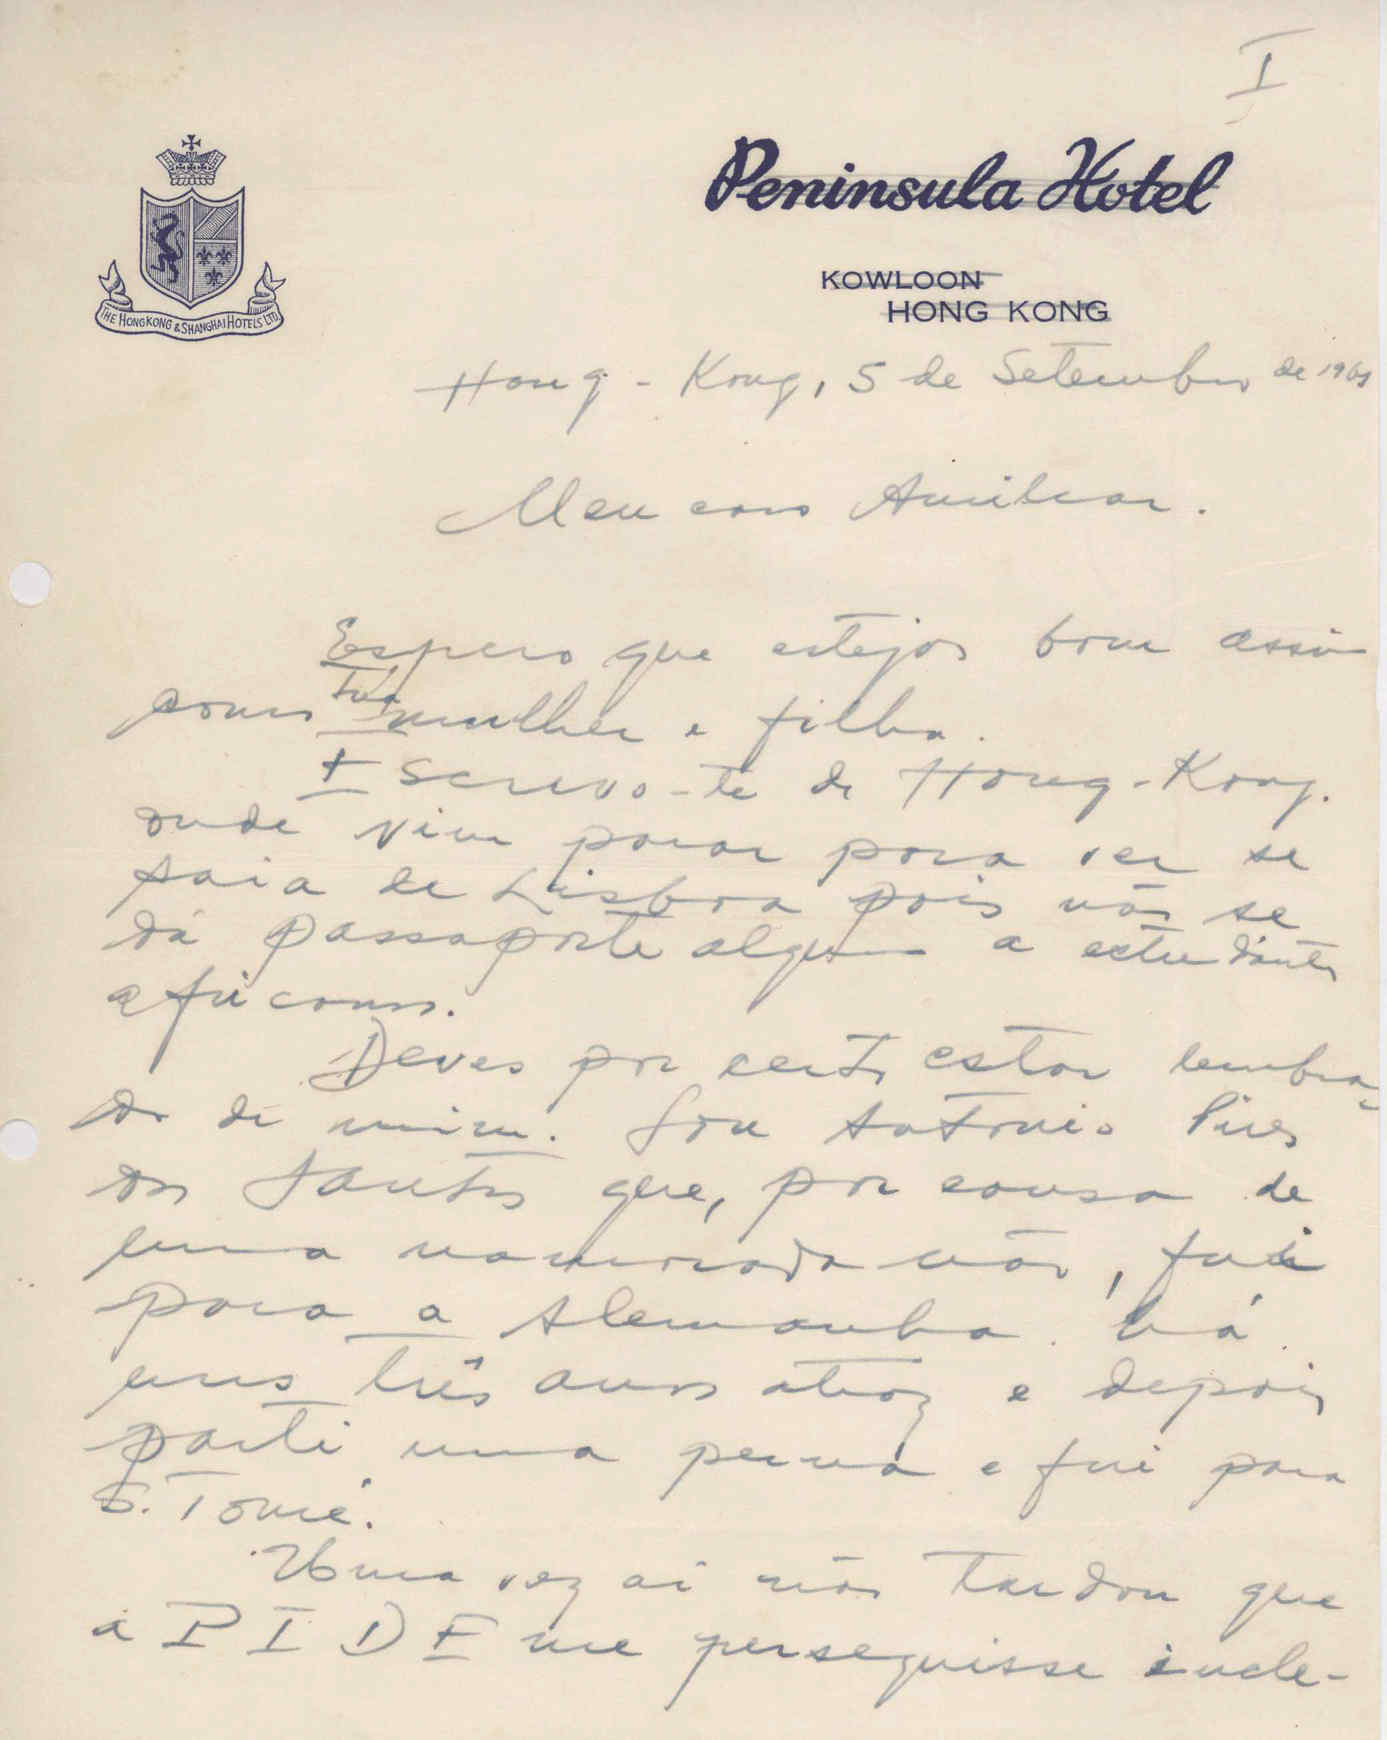 I
Peninsula Hotel
KOWLOON
HONG KONG
THE HONGKONG & SHANGHAI HOTELS LTD.
Hong-Kong, 5 de Setembro de 1961
Meu caro Amilcar.
Espero que estejas bom assim
como tua mulher e filha.
Escrevo-te de Hong-Kong.
onde vim parar para ver se
saia de Lisboa pois não se
dá passaporte algum a estudantes
africanos.
Deves por certo estar lembra-
do de mim. Sou António Pires
dos Santos que, por causa de
uma namorada não, fui
para a Alemanha há
uns três anos atraz e depois
parti uma perna e fui para
S. Tomé.
Uma vez aí não tardou que
a PIDE me perseguisse incle-